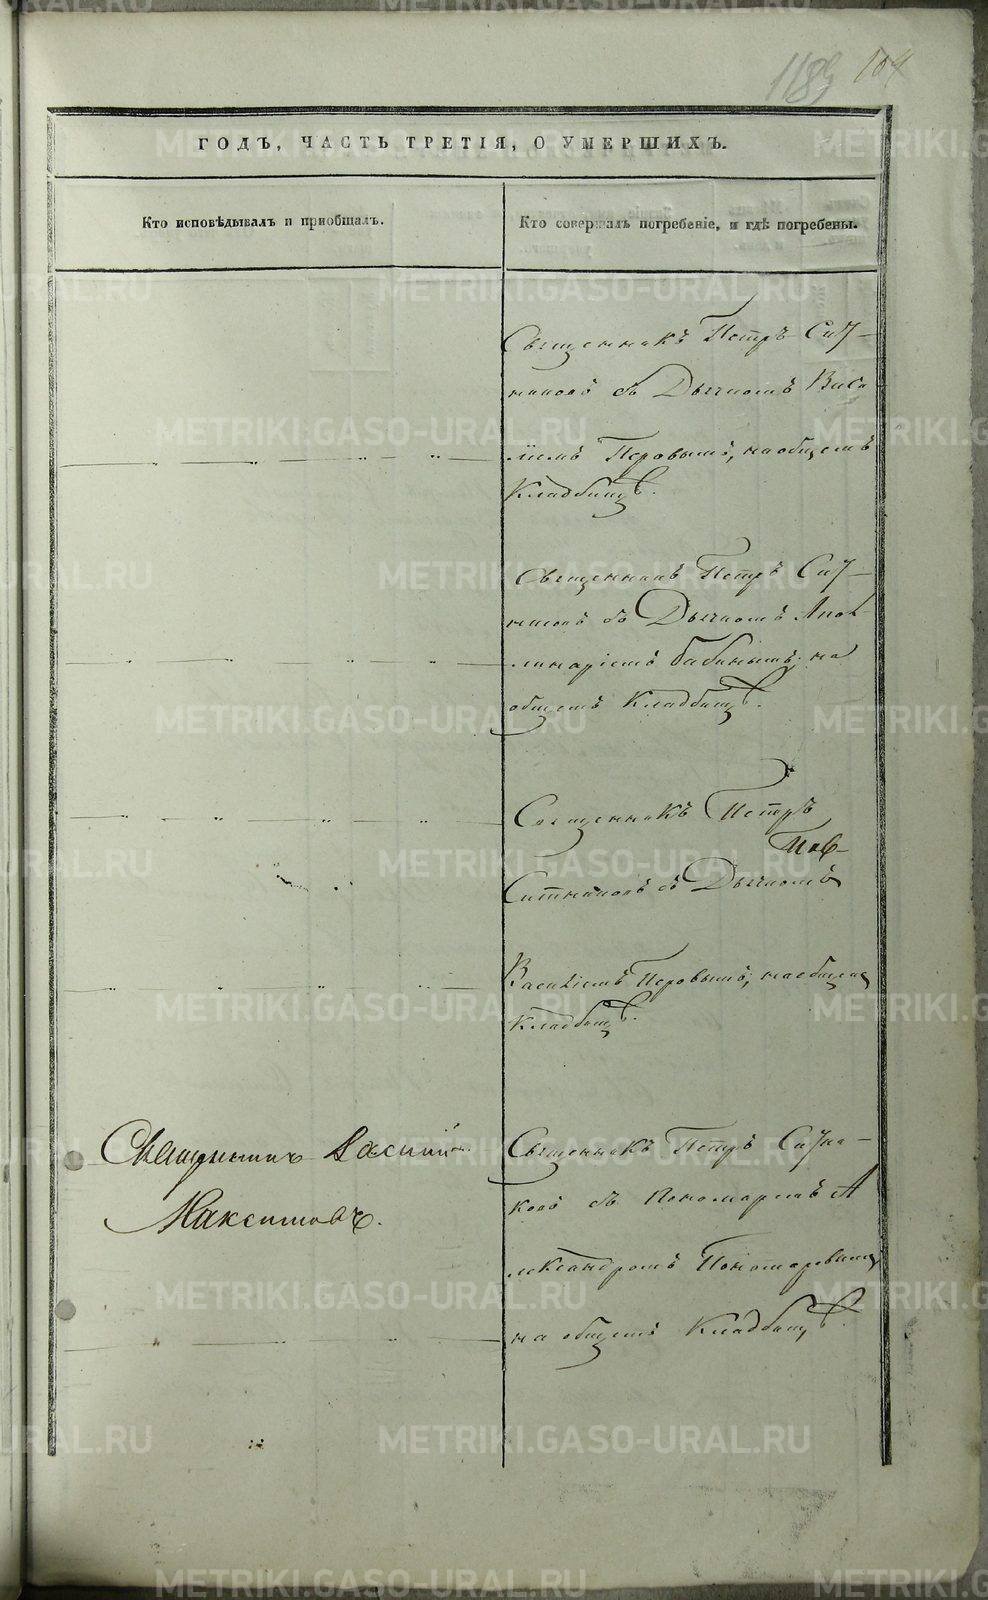 1183 104
ГОДЪ, ЧАСТЬ ТРЕТІЯ, О УМЕРШИХЪ.
Кто исповѣдывалъ и пріобщалъ.
Кто совершалъ погребеніе, и гдѣ погребены.
Священникъ Петръ Сит-
никовъ съ Дьячкомъ Васи
ліемъ Перовымъ, на общемъ
Кладбищѣ.
Священникъ Петръ Сит-
никовъ съ Дьячкомъ Апол
линаріемъ Бабинымъ, на
общемъ Кладбищѣ.
Священникъ Петръ
Ситниковъ съ Дьячкомъ
Василіемъ Перовымъ, на общемъ
Кладбищѣ.
Священникъ Василій
Максимовъ.
Священникъ Петръ Ситни-
ковъ съ Пономаремъ А
лександромъ Пономаревымъ
на общемъ Кладбищѣ.
METRIKI.GASO-URAL.RU